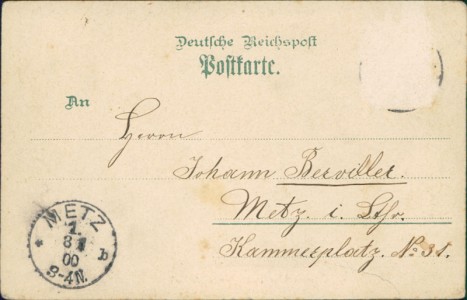 Deutsche Reichspost
Postkarte.
An
Herrn
Johann Berviller.
Metz. i. Lthr.
Kammerplatz. No 31.
METZ
1.
8
00
3-4N.
* b